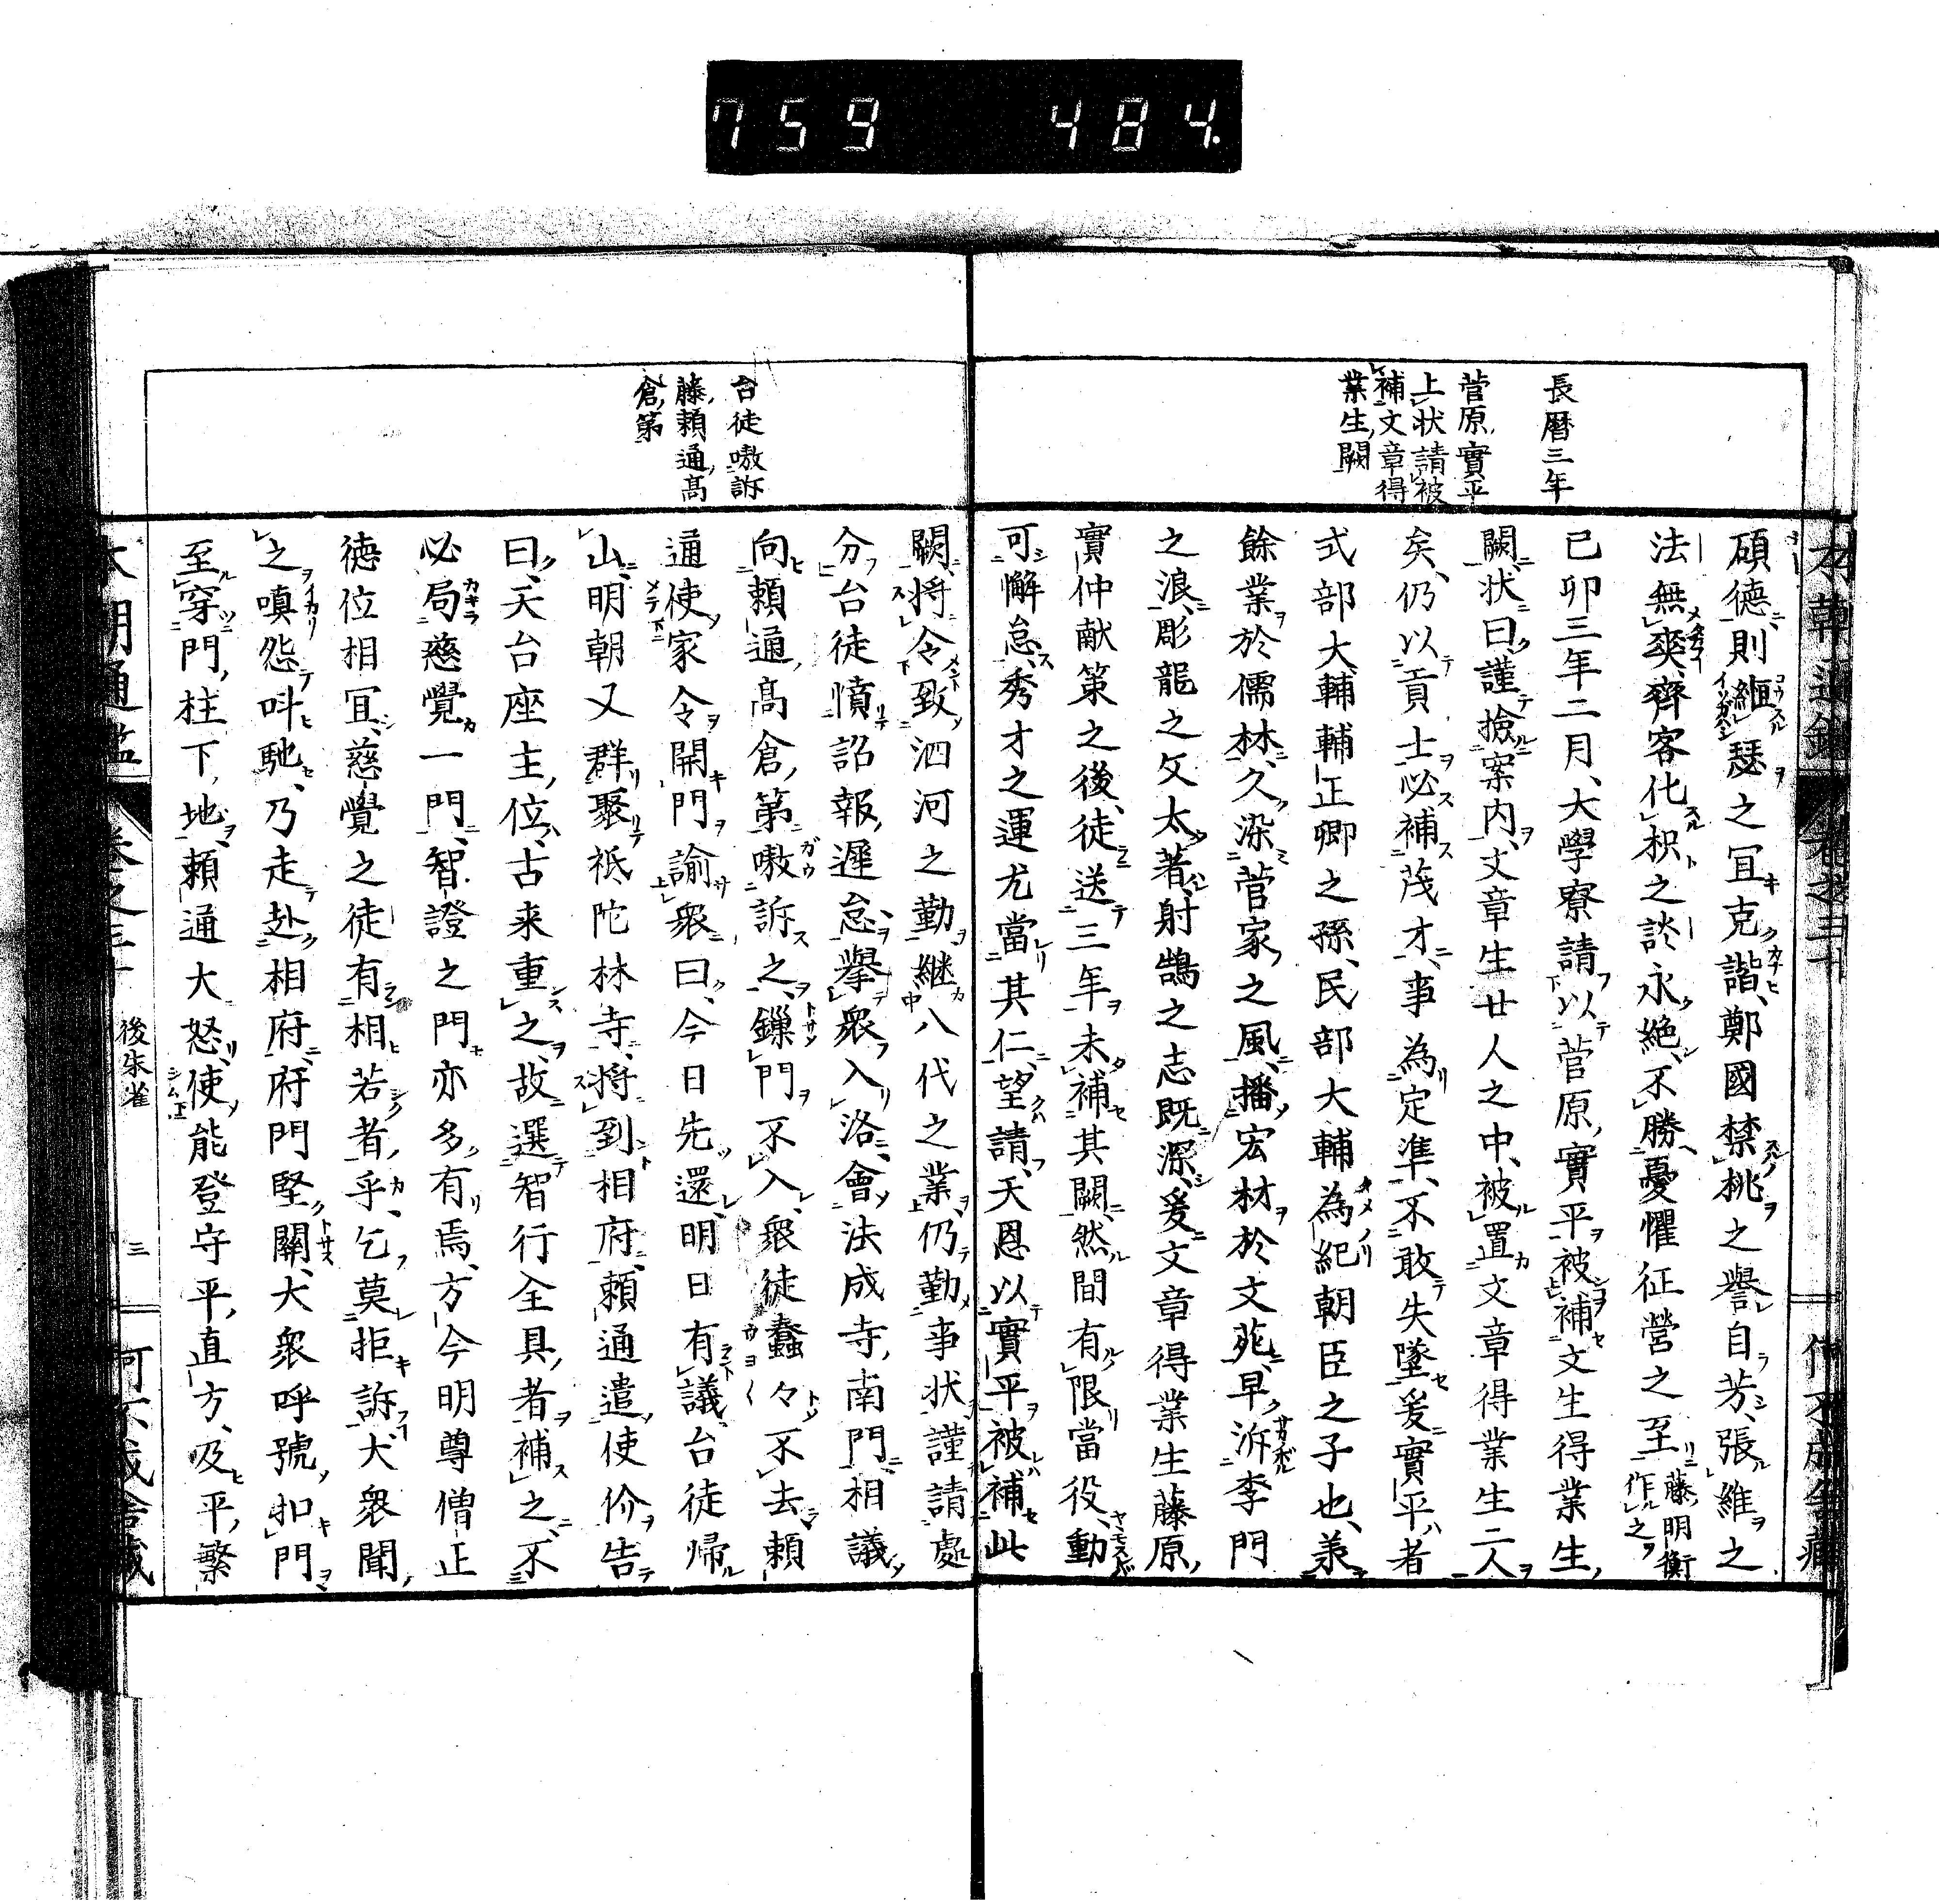 759 484.
長暦三年
菅原實平
上状請被
補文章得
業生闕
碩德則縆瑟之冝克諧鄭國禁桃之譽自芳張維之
法無爽齊客化枳之談永絶不勝憂懼征營之至藤明衡作之
己卯三年二月大學寮請以菅原實平被補文生得業生
闕状曰謹撿案内文章生廿人之中被置文章得業生二人
矣仍以貢士必補茂才事為定準不敢失墜爰實平者
式部大輔輔正卿之孫民部大輔為紀朝臣之子也兼
餘業於儒林久染菅家之風播宏材於文苑早泝李門
之浪彫龍之文太著射鵠之志既深爰文章得業生藤原
實仲献策之後徒送三年未補其闕然間有限當役動
可懈怠秀才之運尤當其仁望請天恩以實平被補此
台徒嗷訴
藤頼通髙
倉第
闕將令致泗河之勤継八代之業仍勤事状謹請處
分台徒憤詔報遲怠擧衆入洛會法成寺南門相議
向頼通髙倉第嗷訴之鏁門不入衆徒蠢々不去頼
通使家令開門諭衆曰今日先還明日有議台徒歸
山明朝又群聚祇陀林寺將到相府頼通遣使价告
曰天台座主位古来重之故選智行全具者補之不
必局慈覺一門智證之門亦多有焉方今明尊僧正
德位相冝慈覺之徒有相若者乎乞莫拒訴大衆聞
之嗔怨呌馳乃走赴相府府門堅關大衆呼號扣門
至穿門柱下地頼通大怒使能登守平直方及平繁
本朝通鑑 卷之三十 後朱雀 三